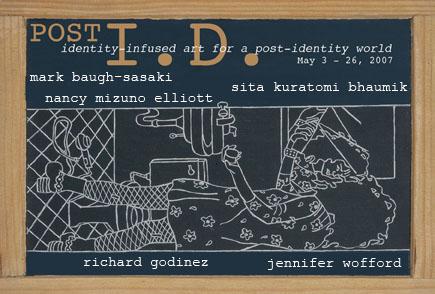 POST
I.D.
identity-infused art for a post-identity world
May 3 - 26, 2007
mark baugh-sasaki
sita kuratomi bhaumik
nancy mizuno elliott
richard godinez
jennifer wofford